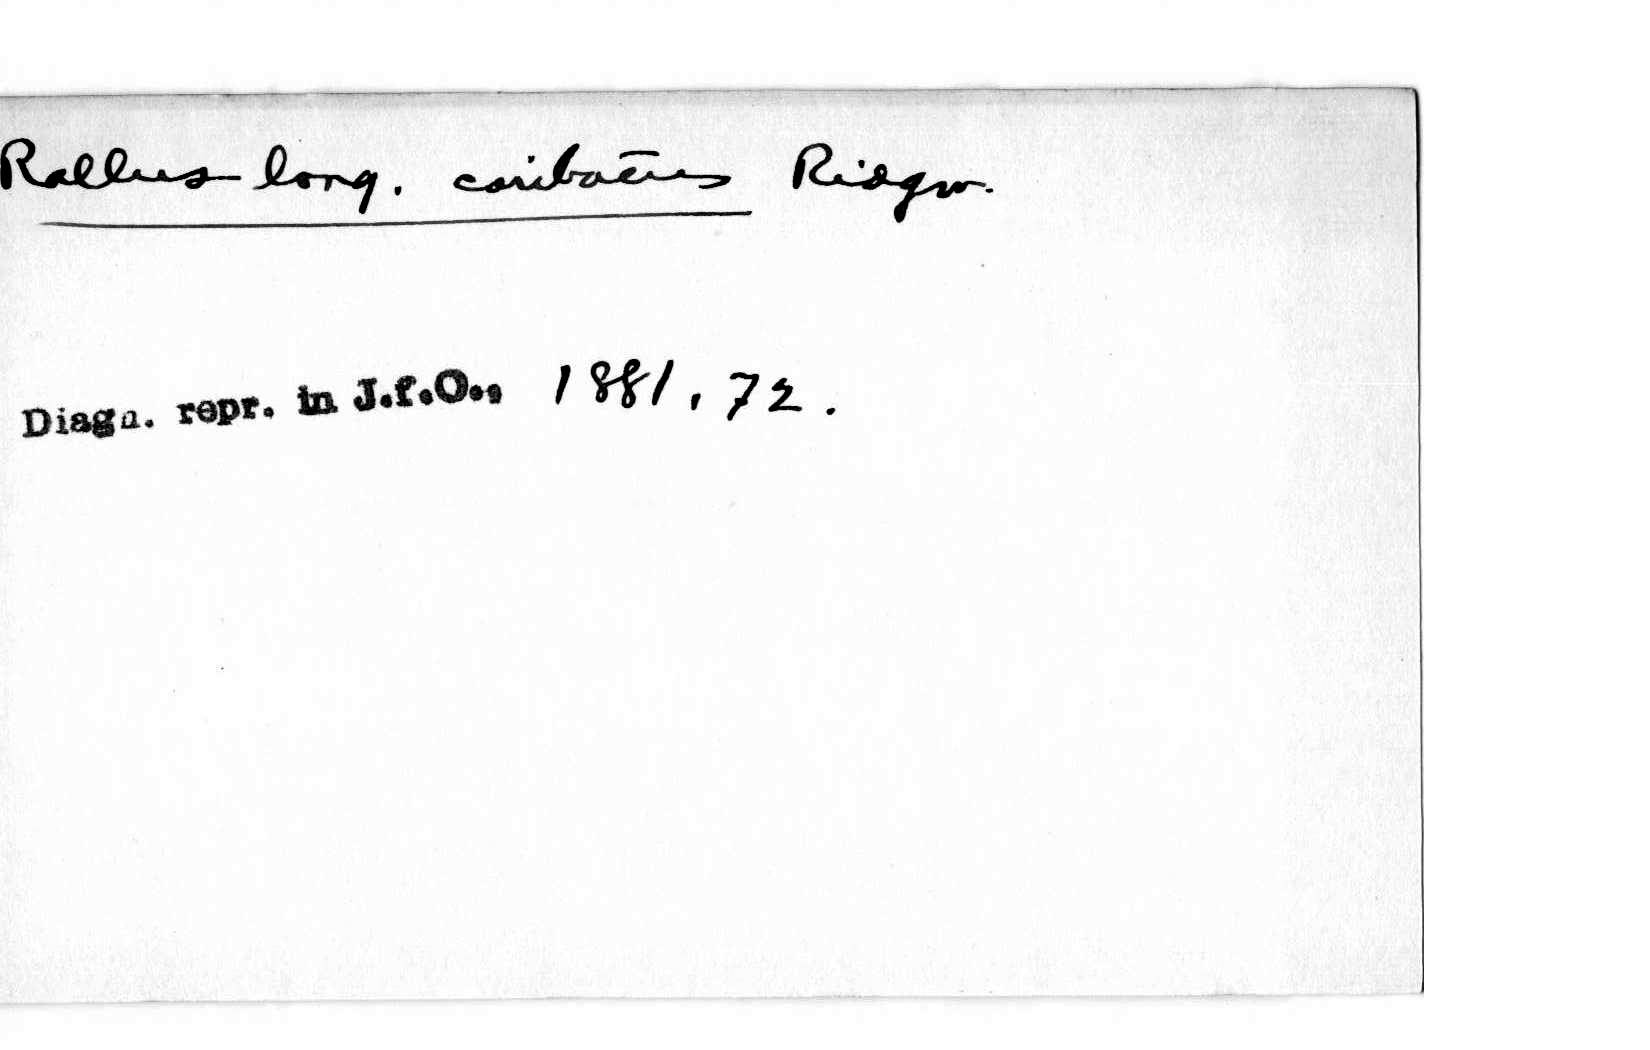 Rallus long. caribaeus Ridgw.
Diagn. repr. in J.f.O., 1881, 72.